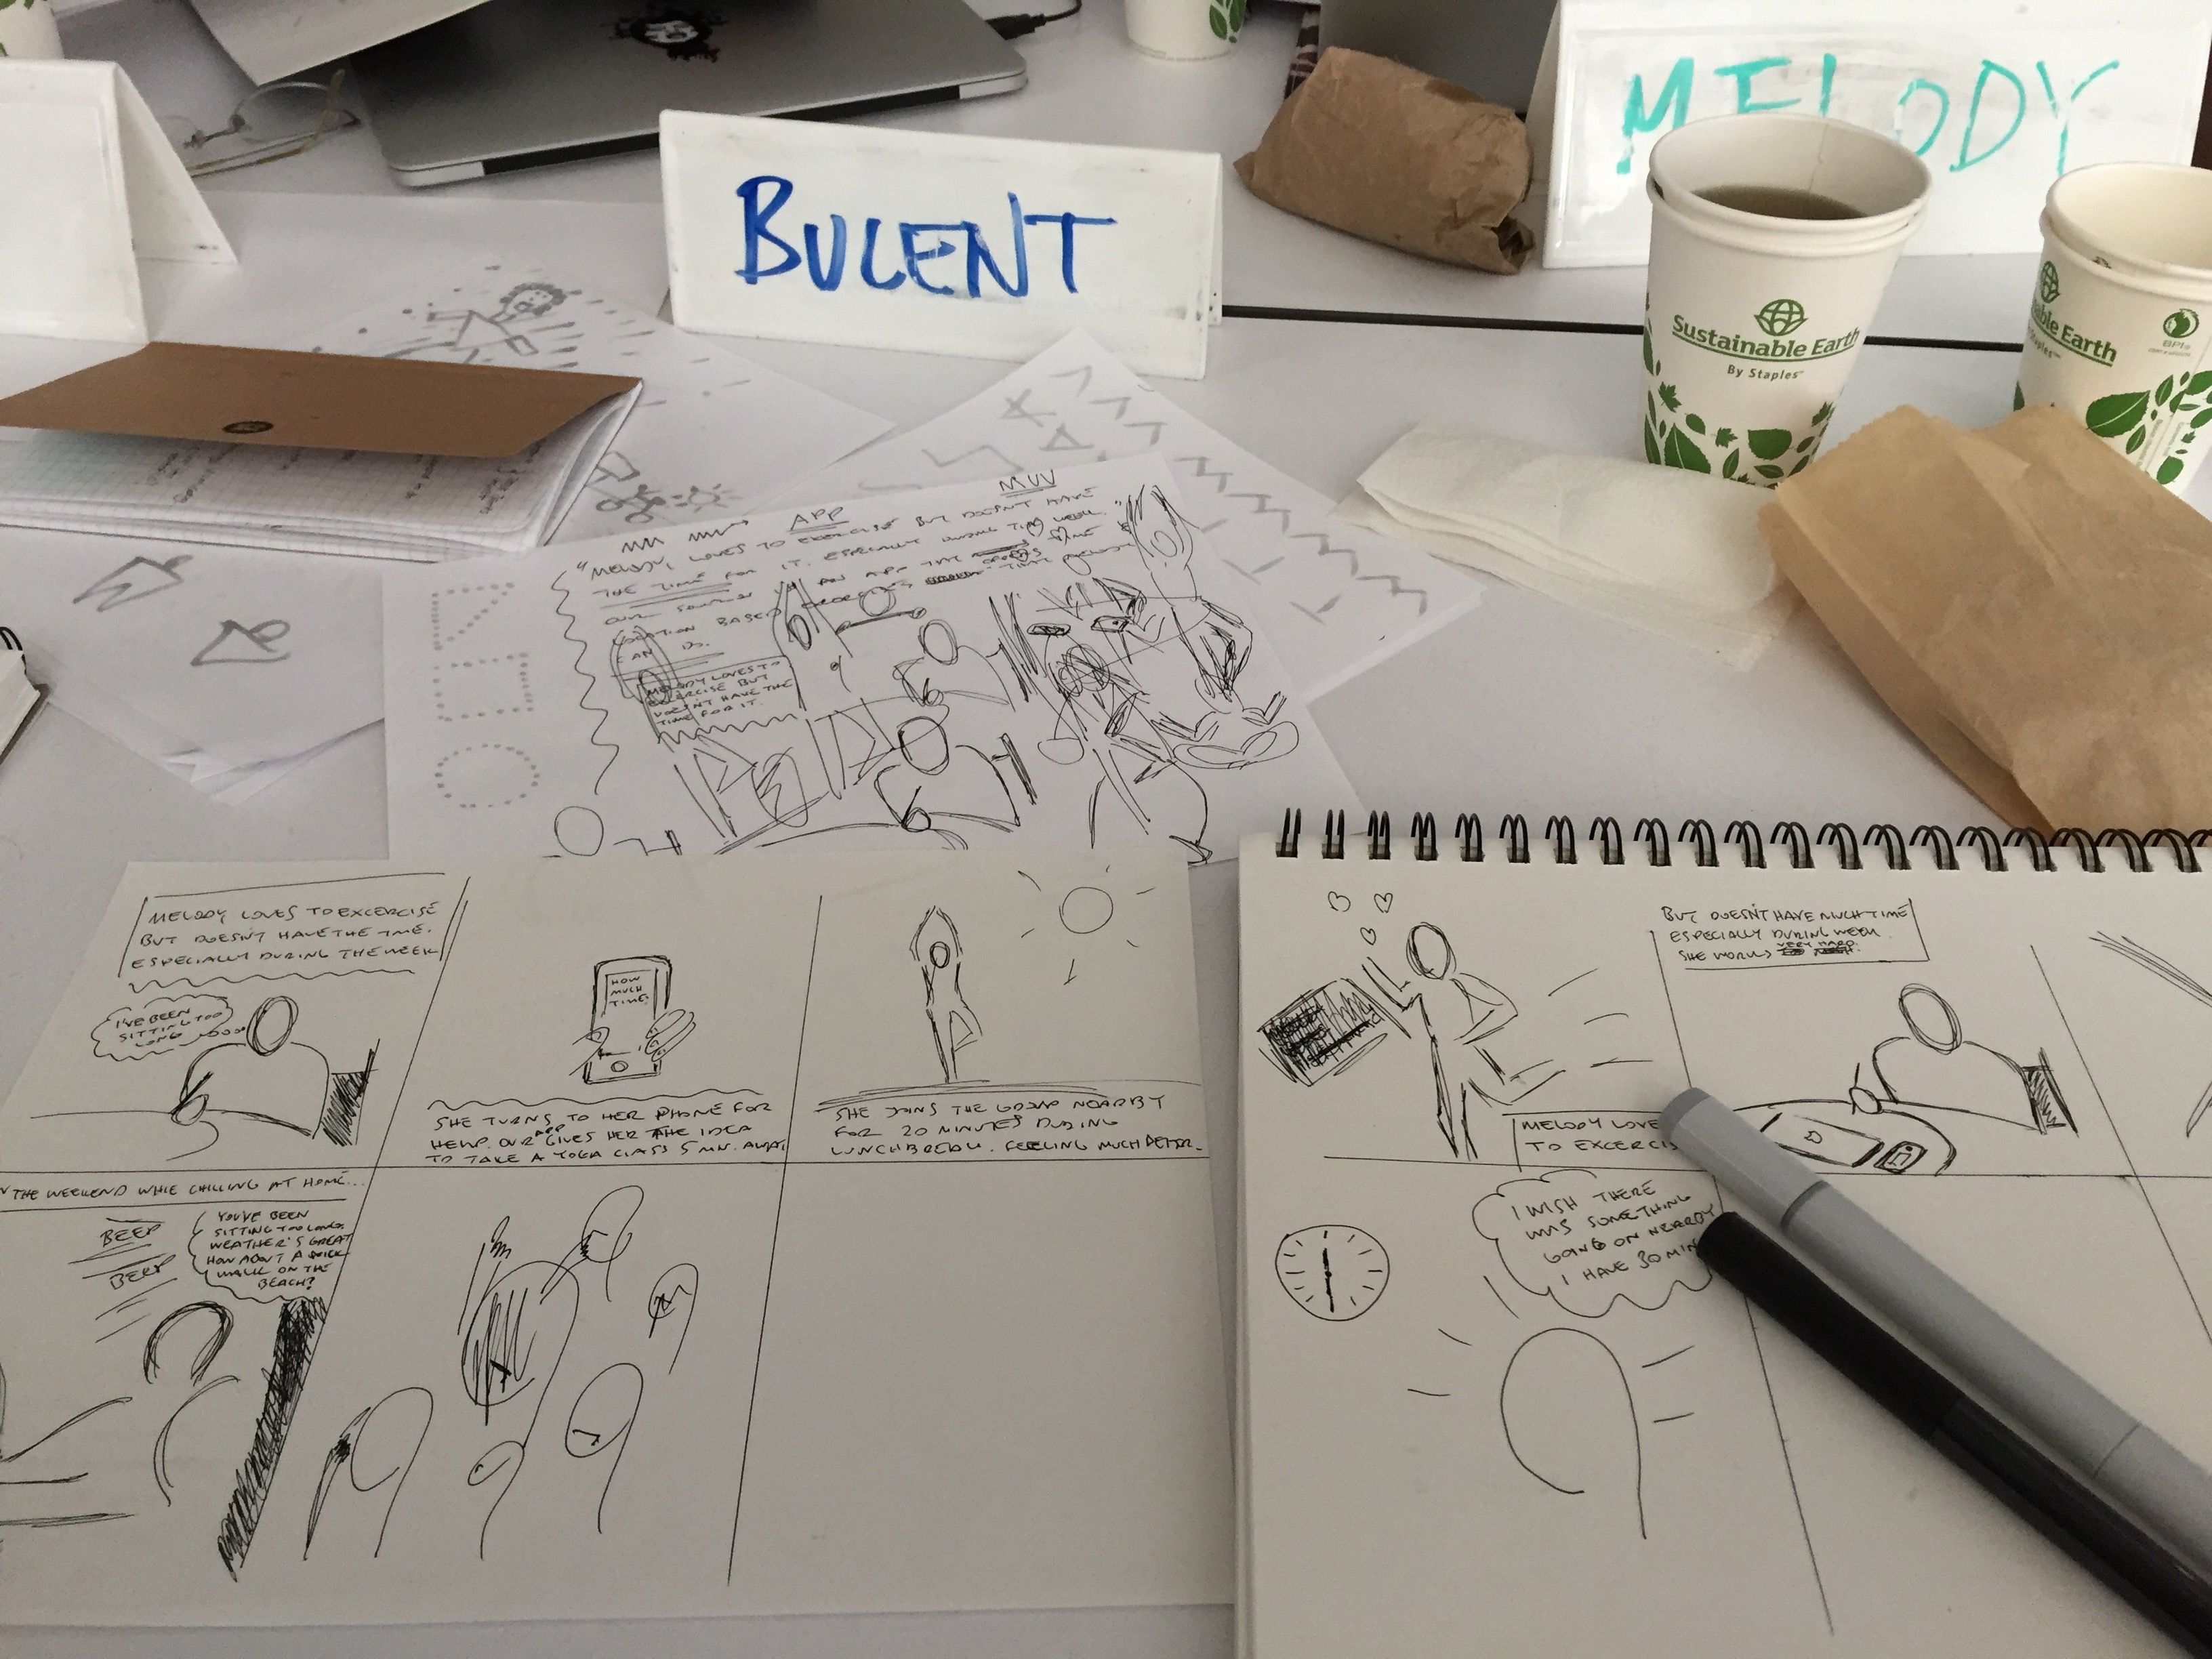 BULENT
MELODY
Sustainable Earth
By Staples
Earth
BPI
MUV
APP
"MELODY LOVES TO EXERCISE BUT DOESN'T HAVE
THE TIME FOR IT. ESPECIALLY DURING THE WEEK.
OUR AN APP THAT TIME
LOCATION BASED
CAN DO.
MELODY LOVES TO
EXERCISE BUT
DOESN'T HAVE THE
TIME FOR IT.
MELODY LOVES TO EXCERCISE
BUT DOESN'T HAVE THE TIME.
ESPECIALLY DURING THE WEEK
I'VE BEEN
SITTING TOO
LONG
HOW
MUCH
TIME?
SHE TURNS TO HER PHONE FOR
HELP. OUR APP GIVES HER THE IDEA
TO TAKE A YOGA CLASS 5 MN. AWAY.
SHE JOINS THE GROUP NEARBY
FOR 20 MINUTES DURING
LUNCHBREAK. FEELING MUCH BETTER.
THE WEEKEND WHILE CHILLING AT HOME...
BEEP
BEEP
YOU'VE BEEN
SITTING TOO LONG.
WEATHER'S GREAT
HOW ABOUT A QUICK
WALK ON THE
BEACH?
MELODY LOVE
TO EXCERCIS
BUT DOESN'T HAVE MUCH TIME
ESPECIALLY DURING WEEK.
SHE WORKS VERY HARD.
I WISH THERE
WAS SOMETHING
GOING ON NEARBY
I HAVE 30 MIN